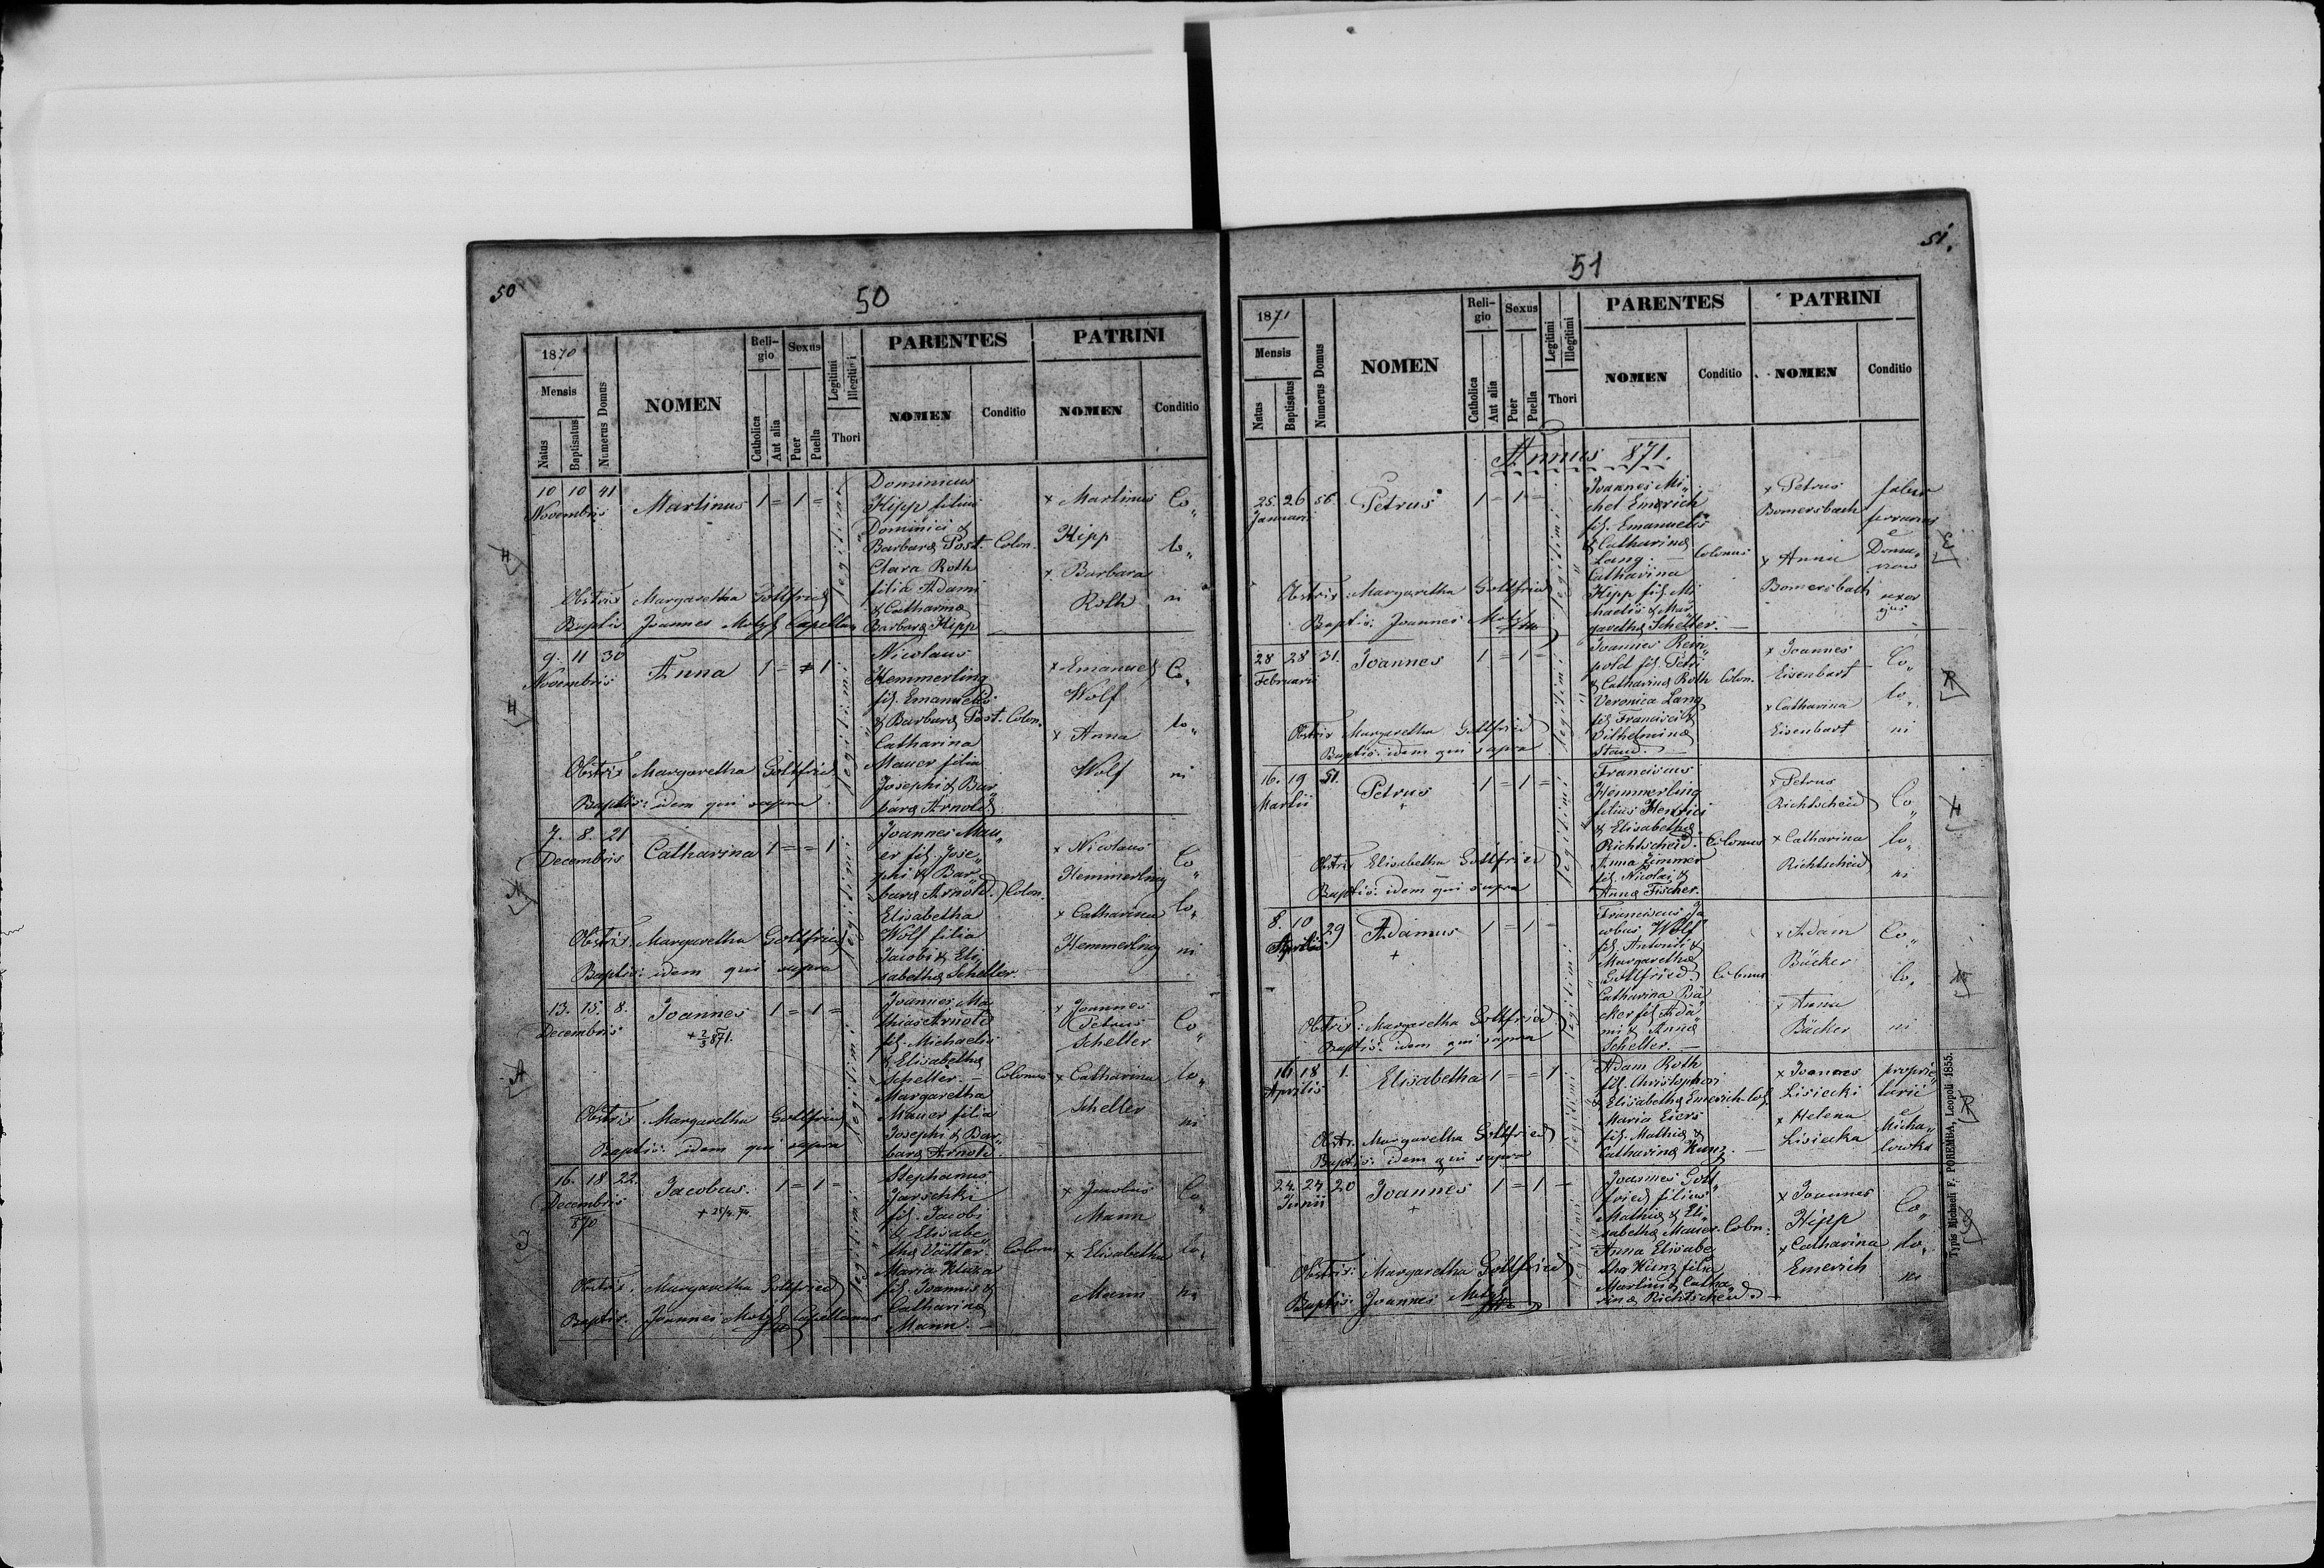 50
50
1870
Mensis
Natus
Baptisatus
Numerus Domus
NOMEN
Religio
Catholica
Aut alia
Sexus
Puer
Puella
Legitimi
Illegitimi
Thori
PARENTES
NOMEN
Conditio
PATRINI
NOMEN
Conditio
10 10 41
Novembris
Martinus
1 = 1 =
legitimi
Dominicus
Hipp filius
Dominici &
Barbara Post.
Clara Roth
filia Adami
& Catharina
Barbara Hipp
Colon.
× Martinus
Hipp
× Barbara
Roth
Co„
lo„
ni
H
Obstrix Margaretha Gottfried
Baptis Joannes Motzs Capellan
9. 11 30
Novembris
Anna
1 = = 1
legitimi
Nicolaus
Hemmerling
fil. Emanuelis
& Barbara Post.
Catharina
Mauer filia
Josephi & Bar„
bara Arnold
Colon.
× Emanuel
Wolf
× Anna
Wolf
Co„
lo„
ni
H
Obstrix Margaretha Gottfried
Baptis: idem qui supra
7. 8. 21
Decembris
Catharina
1 = = 1
legitimi
Joannes Mau„
er fil. Jose„
phi & Bar„
bara Arnold.
Elisabetha
Wolf filia
Jacobi & Eli„
sabetha Scheller.
Colon.
× Nicolaus
Hemmerling
× Catharina
Hemmerling
Co„
lo„
ni
M
Obstrix. Margaretha Gottfried
Baptis: idem qui supra
13. 15. 8.
Decembris
Joannes
+ 2/3 871.
1 = 1 =
legitimi
Joannes Ma„
thias Arnold
fil. Michaelis
& Elisabetha
Scheller. —
Margaretha
Mauer filia
Josephi & Bar„
bara Arnold.
Colonus
× Joannes
Petrus
Scheller
× Catharina
Scheller
Co„
lo„
ni
A
Obstrix. Margaretha Gottfried
Baptis: idem qui supra
16. 18 22.
Decembris
870
Jacobus.
1 = 1 =
legitimi
Stephanus
Jarschki
fil. Jacobi
& Elisabe„
tha Vätter.
Maria Kluza
fil. Joannis &
Catharina
Mann. —
Colonus
× Jacobus
Mann
× Elisabetha
Mann
Co„
lo„
ni
J
Obstrix. Margaretha Gottfried
Baptis. Joannes Motzs Capellanus
51.
51
1871
Mensis
Natus
Baptisatus
Numerus Domus
NOMEN
Religio
Catholica
Aut alia
Sexus
Puer
Puella
Legitimi
Illegitimi
Thori
PARENTES
NOMEN
Conditio
PATRINI
NOMEN
Conditio
Annus 871.
25. 26 56.
Januarii
Petrus
1 = 1 =
legitimi
Joannes Mi„
chel Emerich
fil. Emanuelis
& Catharina
Lang. —
Catharina
Hipp fil. Mi
chaelis & Mar
garetha Scheller. —
Colonus
× Petrus
Bomersbach
× Anna
Bomersbach
faber
ferrarius
e
uxor
ejus
E
Obstrix. Margaretha Gottfried
Baptis: Joannes Motzs
28 28 31.
Februarii
Joannes
1 = 1 =
legitimi
Joannes Rein„
pold fil. Petri
& Catharina Roth
Veronica Lang
fil. Francisci &
Vilhelmina
Staud. —
Colon.
× Joannes
Eisenbart
× Catharina
Eisenbart
Co„
lo„
ni
R
Obstrix Margaretha Gottfried
Baptis: idem qui supra
16. 19 51.
Martii
Petrus
+
1 = 1 =
legitimi
Franciscus
Hemmerling
filius Henrici
& Elisabetha
Richtscheid.
Anna Zimmer
fil. Nicolai &
Anna Fischer.
Colonus
× Petrus
Richtscheid
× Catharina
Richtscheid
Co„
lo„
ni
H
Obstrix Elisabetha Gottfried
Baptis: idem qui supra
8. 10 29
Aprilis.
Adamus
+
1 = 1 =
legitimi
Franciscus Ja„
cobus Wolf
fil. Antonii &
Margaretha
Gottfried.
Catharina Bä„
cker fil. Ada„
mi & Anna
Scheller. —
Colonus
× Adam
Bäcker
× Anna
Bäcker
Co„
lo„
ni
W
Obstrix: Margaretha Gottfried
Baptis: idem qui supra
16. 18 1.
Aprilis
Elisabetha
1 = = 1
legitimi
Adam Roth
fil. Christophori
& Elisabetha Emerich
Maria Eiers
fil. Mathia &
Catharina Kunz. —
Col.
× Joannes
Lisiecki
× Helena
Lisiecka
proprie„
tarii
e
Micha„
lowka
R
Obstr. Margaretha Gottfried
Baptis: idem qui supra
24. 24 20
Junii
Joannes
+
1 = 1 =
legitimi
Joannes Gott„
fried filius
Mathia & Eli„
sabetha Mauer.
Anna Elisabe„
tha Kunz filia
Martini & Catha„
rina Richtscheid. —
Colon.
× Joannes
Hipp
× Catharina
Emerich
Co„
lo„
ni
G
Obstrix: Margaretha Gottfried
Baptis: Joannes Motzs
Typis Michaeli F. POREMBA, Leopoli 1855.